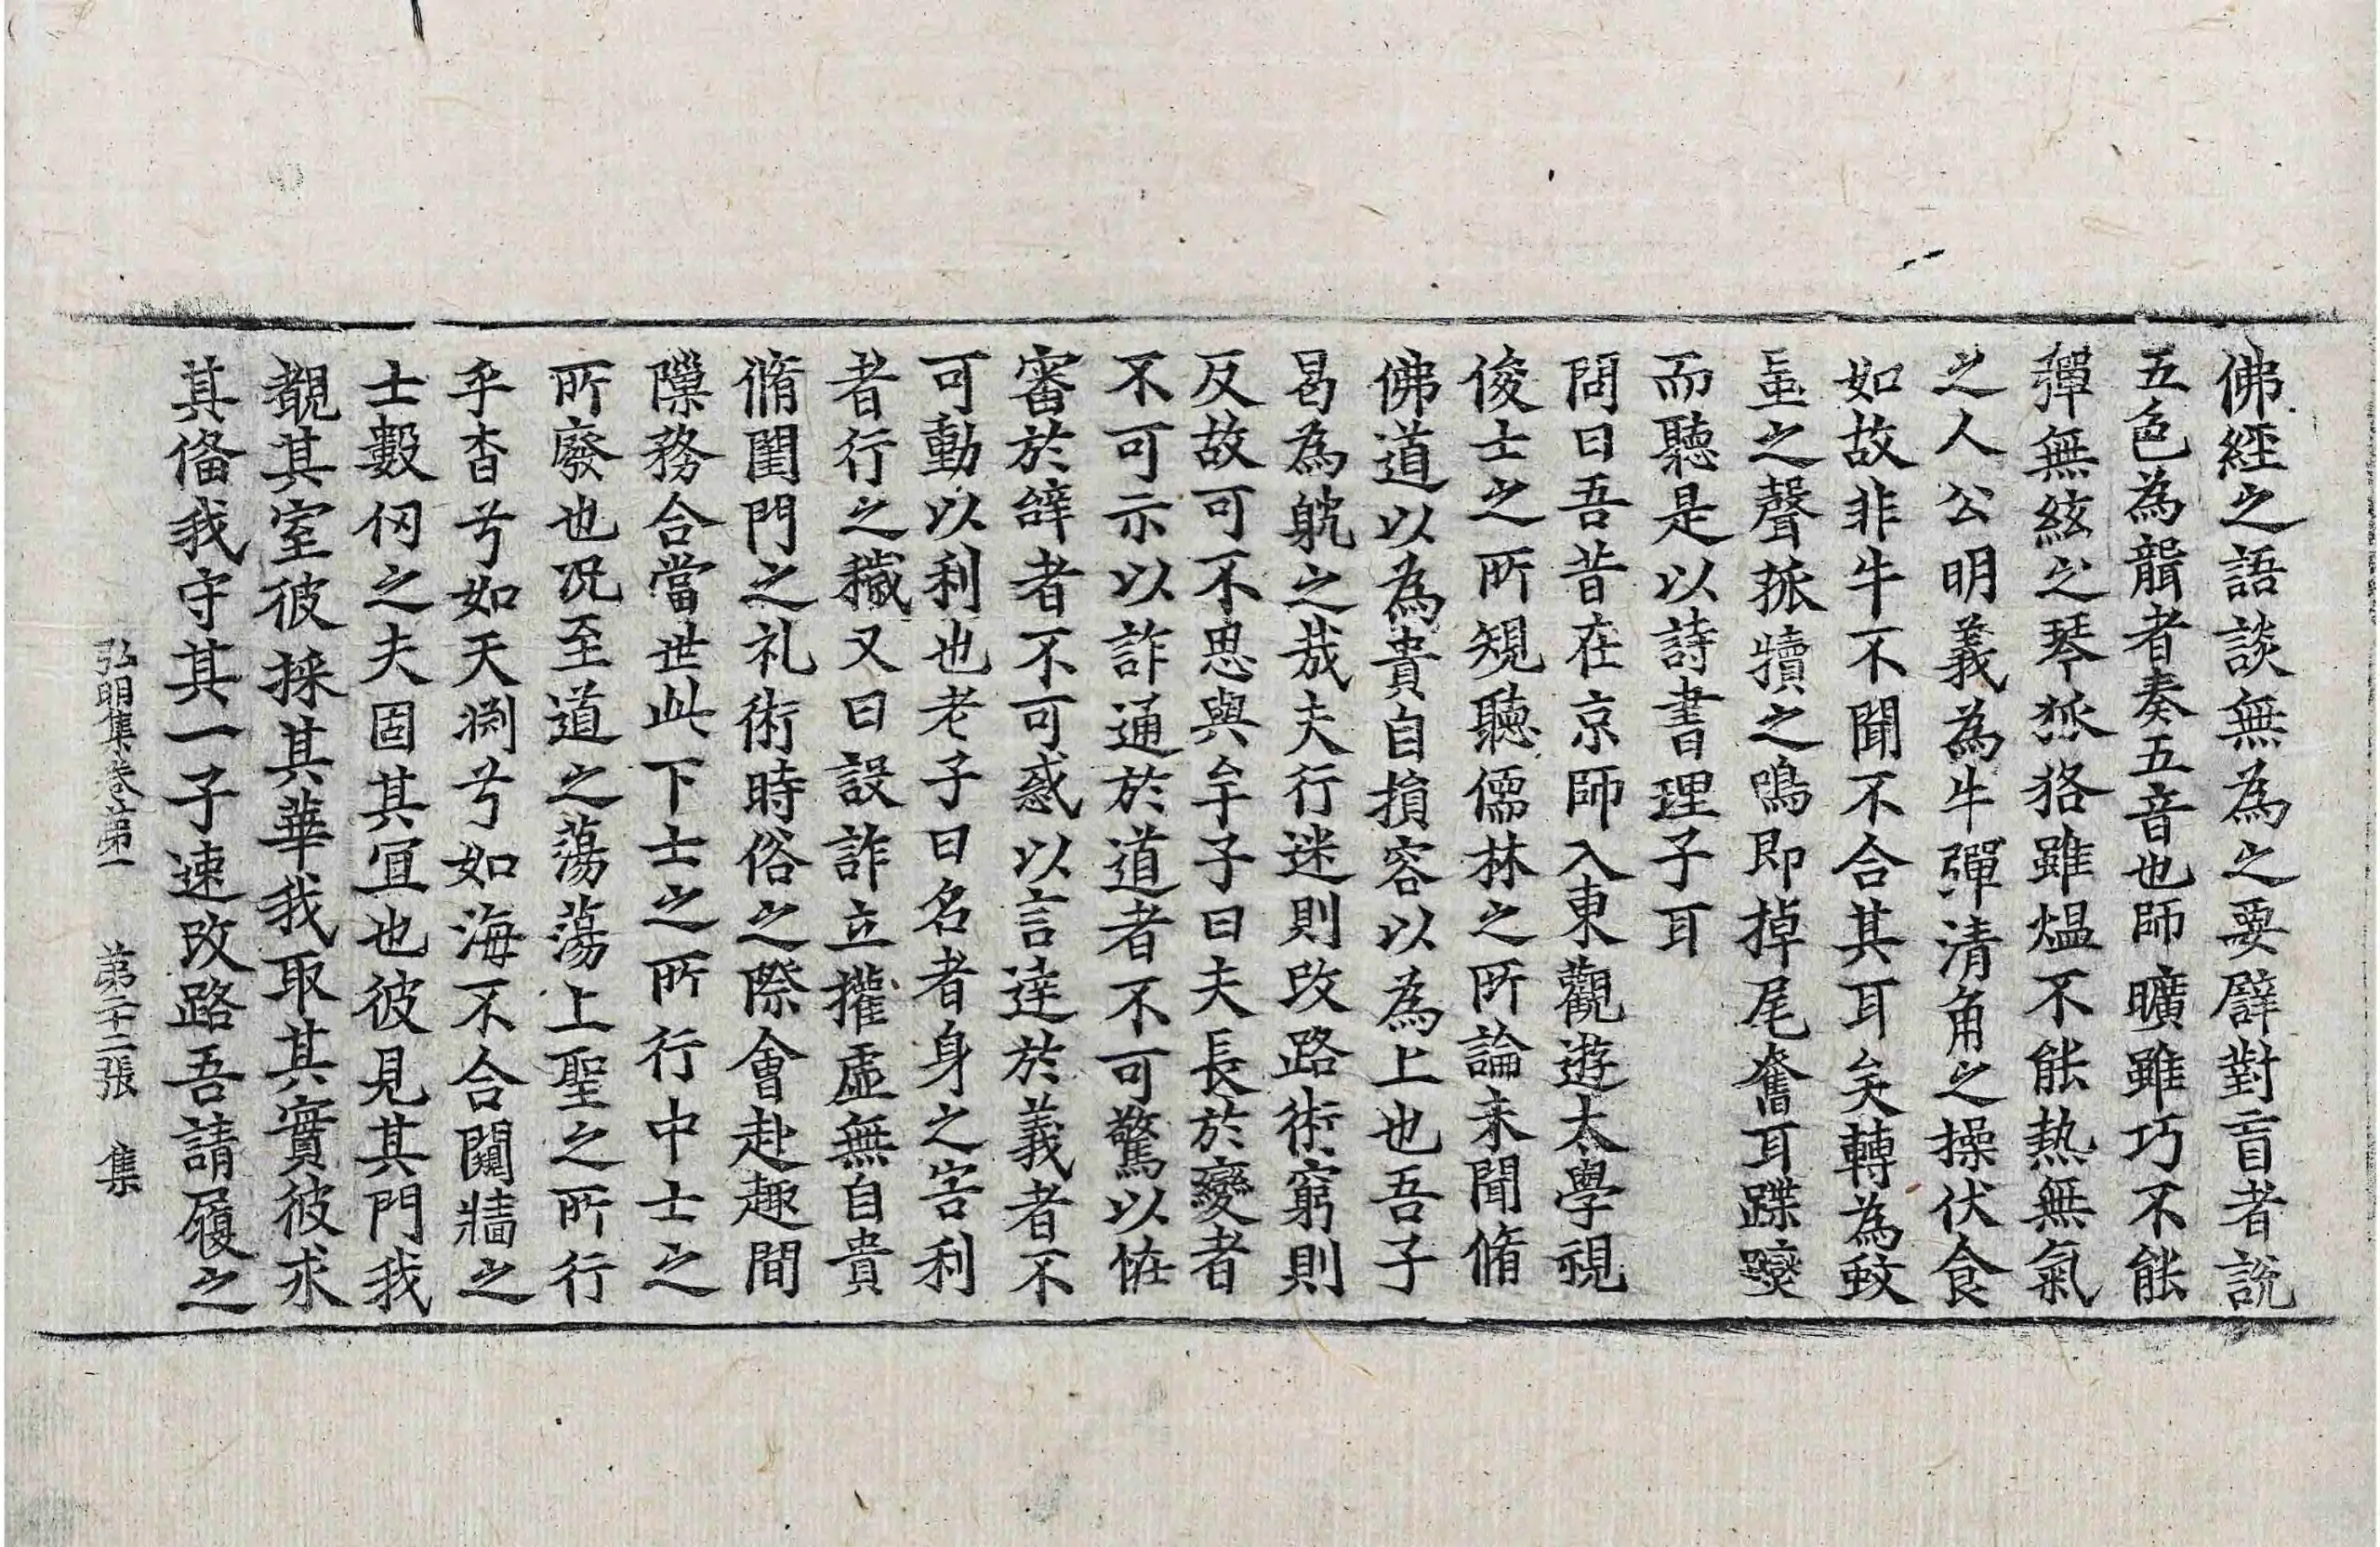 佛經之語談無為之要譬對盲者說
五色為聾者奏五音也師曠雖巧不能
彈無絃之琴狐狢雖熅不能熱無氣
之人公明義為牛彈清角之操伏食
如故非牛不聞不合其耳矣轉為蚊
虻之聲孤犢之鳴即掉尾奮耳蹀躞
而聽是以詩書理子耳
問曰吾昔在京師入東觀遊太學視
俊士之所䂓聽儒林之所論未聞脩
佛道以為貴自損容以為上也吾子
曷為躭之哉夫行迷則改路術窮則
反故可不思與牟子曰夫長於變者
不可示以詐通於道者不可驚以恠
審於辝者不可惑以言達於義者不
可動以利也老子曰名者身之害利
者行之穢又曰設詐立權虛無自貴
脩閨門之礼術時俗之際會赴趣間
隟務合當世此下士之所行中士之
所廢也况至道之蕩蕩上聖之所行
乎杳兮如天渊兮如海不合闚牆之
士數仞之夫固其宜也彼見其門我
覩其室彼採其華我取其實彼求
其俻我守其一子速改路吾請履之
弘明集卷第一 第二十二張 集